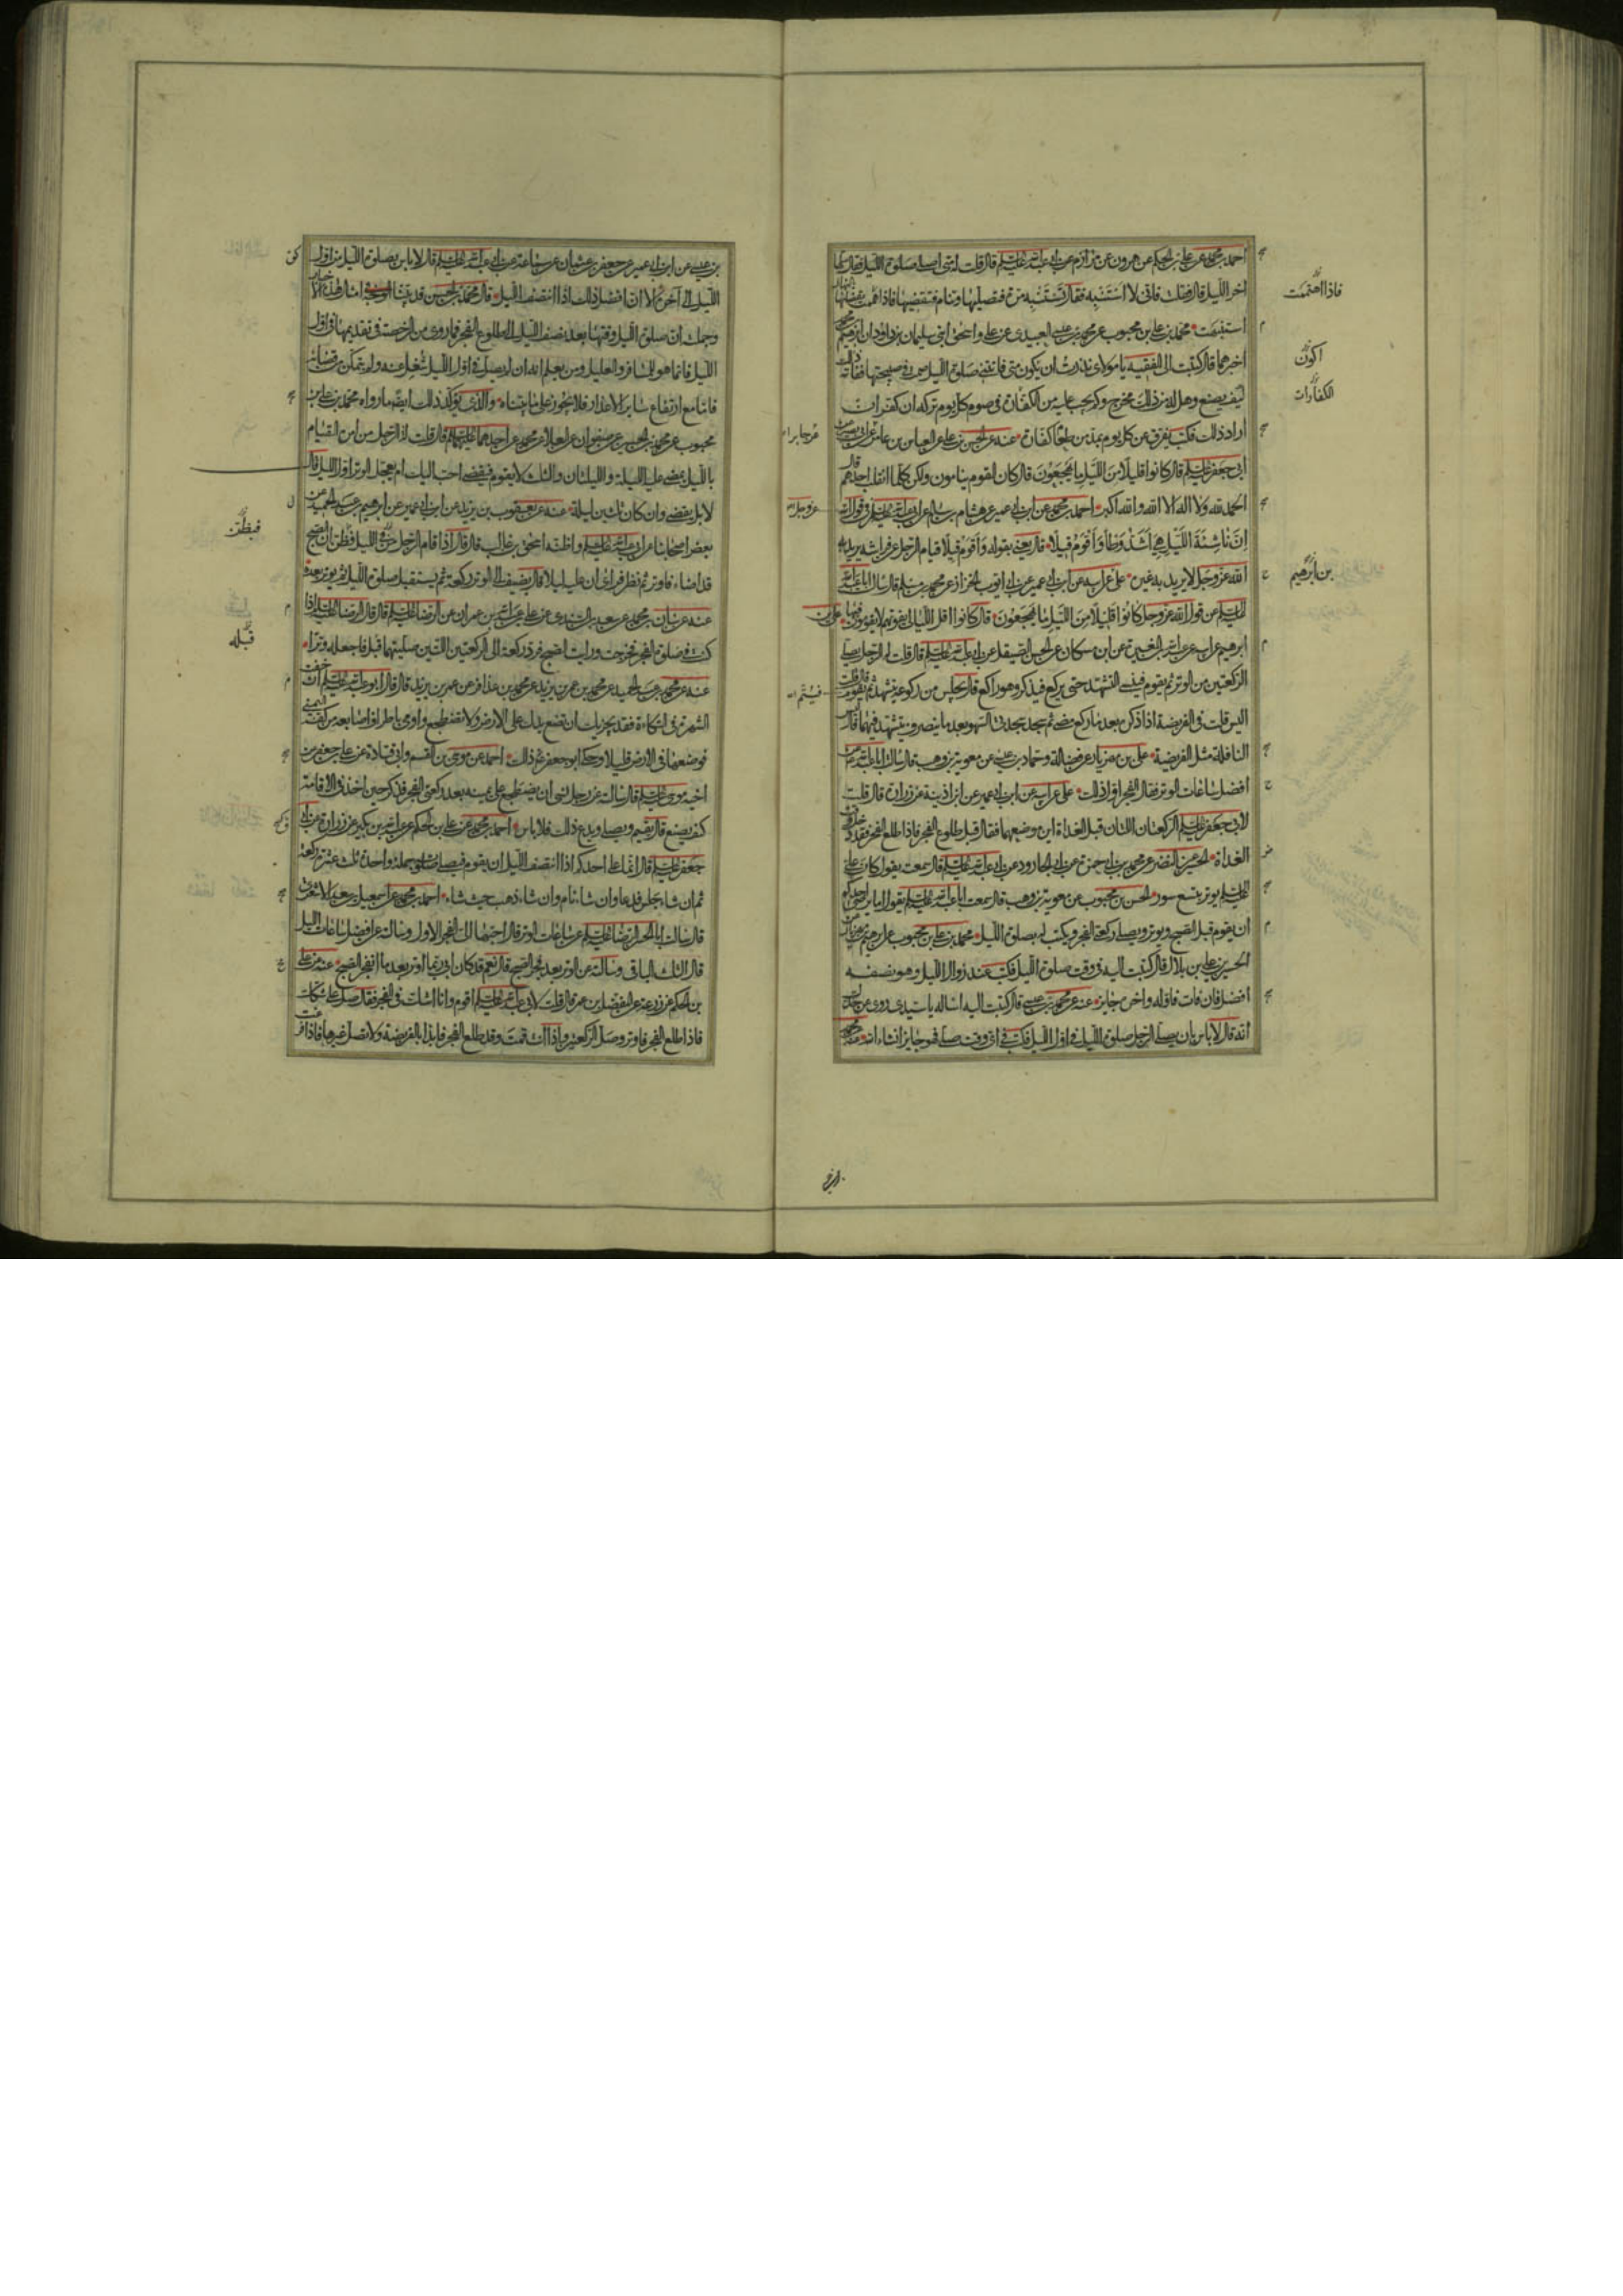 احمد بن محمد عن علي بن الحكم عن هرون عن مرازم عن ابي عبد الله عليه السلم قال قلت له متى اصلي صلوة الليل فقال صلها
اخر الليل قال فقلت فاني لا استنبه فقال تستنبه مرة فتصليها وتنام فتقضيها فاذا اهتممت بقضائها بالنهار
استنبهت محمد بن علي بن محبوب عن محمد بن عيسى العبيدي عن علي واسحق ابني سليمان بن داود ان ابرهيم بن محمد
اخبرهما قال كتبت الى الفقيه يا مولاي نذرت ان يكون متى فاتتني صلوة الليل صمت في صبيحتها ففاته ذلك
كيف يصنع وهل له من ذلك مخرج وكم يجب عليه من الكفارة في صوم كل يوم تركه ان كفر ان
اراد ذلك فكتب يفرق عن كل يوم بمد من طعام كفارة عنه عن الحسن بن علي عن العباس بن عامر عن
ابي جعفر عليه السلم قال كانوا قليلا من الليل ما يهجعون قال كان القوم ينامون ولكن كلما انقلب احدهم قال
الحمد لله ولا اله الا الله والله اكبر احمد بن محمد عن ابن ابي عمير عن هشام بن سالم عن ابي عبد الله عليه السلم في قول الله
ان ناشئة الليل هي اشد وطأ واقوم قيلا قال يعني بقوله واقوم قيلا قيام الرجل عن فراشه يريد به
الله عز وجل لا يريد به غيره علي عن ابيه عن ابن ابي عمير عن ابي ايوب الخزاز عن محمد بن مسلم قال سالت ابا عبد الله
عليه السلم عن قول الله عز وجل كانوا قليلا من الليل ما يهجعون قال كانوا اقل الليالي يفوتهم لا يقومون فيها علي بن
ابرهيم عن ابيه عن عبد الله بن المغيرة عن ابن مسكان عن الحسن الصيقل عن ابي عبد الله عليه السلم قال قلت له الرجل يصلي
الركعتين من الوتر ثم يقوم فينسى التشهد حتى يركع فيذكر وهو راكع قال يجلس من ركوعه يتشهد ثم يقوم قال قلت
اليس قلت في الفريضة اذا ذكره بعد ما ركع مضى ثم سجد سجدتي السهو بعد ما ينصرف يتشهد فيهما قال ليس
النافلة مثل الفريضة علي بن مهزيار عن فضالة وحماد بن عيسى عن معوية بن وهب قال سالت ابا عبد الله عن
افضل ساعات الوتر فقال الفجر اول ذلك علي عن ابيه عن ابن ابي عمير عن ابن اذينة عن زرارة قال قلت
لابي جعفر عليه السلم الركعتان اللتان قبل الغداة اين موضعهما فقال قبل طلوع الفجر فاذا طلع الفجر فقد دخل وقت
الغداة الحسين عن النضر عن محمد بن ابي حمزة عن ابي الجارود عن ابي عبد الله عليه السلم قال سمعته يقول كان علي
عليه السلم يوتر بتسع سور الحسن بن محبوب عن معوية بن وهب قال سمعت ابا عبد الله عليه السلم يقول اما يرضى احدكم
ان يقوم قبل الصبح ويوتر ويصلي ركعتي الفجر ويكتب له بصلوة الليل محمد بن علي بن محبوب عن ابرهيم بن مهزيار عن
الحسين بن علي بن بلال قال كتبت اليه في وقت صلوة الليل فكتب عند زوال الليل وهو نصفه
افضل فان فات فاوله واخره جايز عنه عن محمد بن عيسى قال كتبت اليه اساله يا سيدي روي عن جدك
انه قال لا باس بان يصلي الرجل صلوة الليل في اول الليل فكتب في اي وقت صلى فهو جايز انشاء الله عنه عن محمد
فاذا اهتممت
اكون
الكفارات
بن ابرهيم
بن عيسى عن ابن ابي عمير عن جعفر بن عثمان عن سماعة عن ابي عبد الله عليه السلم قال لا باس بصلوة الليل من اول
الليل الى آخره الا ان افضل ذلك اذا انتصف الليل قال محمد بن الحسن قد بينا الوجه في امثال هذه الاخبار
وجملته ان صلوة الليل وقتها بعد نصف الليل الى طلوع الفجر فما روي من الرخصة في تقديمها في اول
الليل فانما هو للمسافر والعليل ومن يعلم انه ان لم يصل في اول الليل شغل عنه ولم يتمكن من قضائه
فاما مع ارتفاع ساير الاعذار فلا يجوز على ما بيناه والذي يؤكد ذلك ايضا ما رواه محمد بن علي بن
محبوب عن محمد بن الحسين عن صفوان عن العلا عن محمد عن احدهما عليهما السلم قال قلت له الرجل من امره القيام
بالليل يمضي عليه الليلة والليلتان والثلث لا يقوم فيقضي احب اليك ام يعجل الوتر اول الليل قال
لا بل يقضي وان كان ثلثين ليلة عنه عن يعقوب بن يزيد عن ابن ابي عمير عن ابرهيم بن عبد الحميد عن
بعض اصحابنا عن ابي عبد الله عليه السلم واظنه اسحق بن غالب قال قال اذا قام الرجل من الليل فظن ان الصبح
قد اضاء فاوتر ثم نظر فراى ان عليه ليلا قال يضيف الى الوتر ركعة ثم يستقبل صلوة الليل ثم يوتر بعده
عنه عن بنان بن محمد عن سعد بن السندي عن علي بن عبد الله بن عمران عن الرضا عليه السلم قال قال الرضا عليه السلم اذا
كنت في صلوة الفجر فخرجت ورايت الصبح فزد ركعة الى الركعتين اللتين صليتهما قبل فاجعله وترا
عنه عن محمد بن عبد الحميد عن محمد بن عمر بن يزيد عن محمد بن عذافر عن عمر بن يزيد قال قال ابو عبد الله عليه السلم ان خفت
الشهرة في التكاءة فقد يجزيك ان تضع يدك على الارض ولا تضطجع واومى باطراف اصابعه من كفه اليمنى
فوضعها في الارض قليلا وحكى ابو جعفر ذلك احمد عن موسى بن القسم وابي قتادة عن علي بن جعفر عن
اخيه موسى عليه السلم قال سالته عن رجل نسي ان يضطجع على يمينه بعد ركعتي الفجر فذكر حين اخذ في الاقامة
كيف يصنع قال يقيم ويصلي ويدع ذلك فلا باس احمد بن محمد عن علي بن الحكم عن عبد الله بن بكير عن زرارة عن ابي
جعفر عليه السلم قال انما على احدكم اذا انتصف الليل ان يقوم فيصلي صلوته جملة واحدة ثلث عشرة ركعة
ثم ان شاء جلس فدعا وان شاء نام وان شاء ذهب حيث شاء احمد بن محمد عن اسمعيل بن سعد الاشعري
قال سالت ابا الحسن الرضا عليه السلم عن ساعات الوتر قال احبها الى الفجر الاول وسالته عن افضل ساعات الليل
قال الثلث الباقي وسالته عن الوتر بعد فجر الصبح قال نعم قد كان ابي ربما اوتر بعد ما انفجر الصبح عنه عن علي
بن الحكم عن زرعة عن المفضل بن عمر قال قلت لابي عبد الله عليه السلم اقوم وانا اشك في الفجر فقال صل على شكك
فاذا طلع الفجر فاوتر وصل الركعتين واذا انت قمت وقد طلع الفجر فابدا بالفريضة ولا تصل غيرها فاذا فرغت
فيظن
قبله